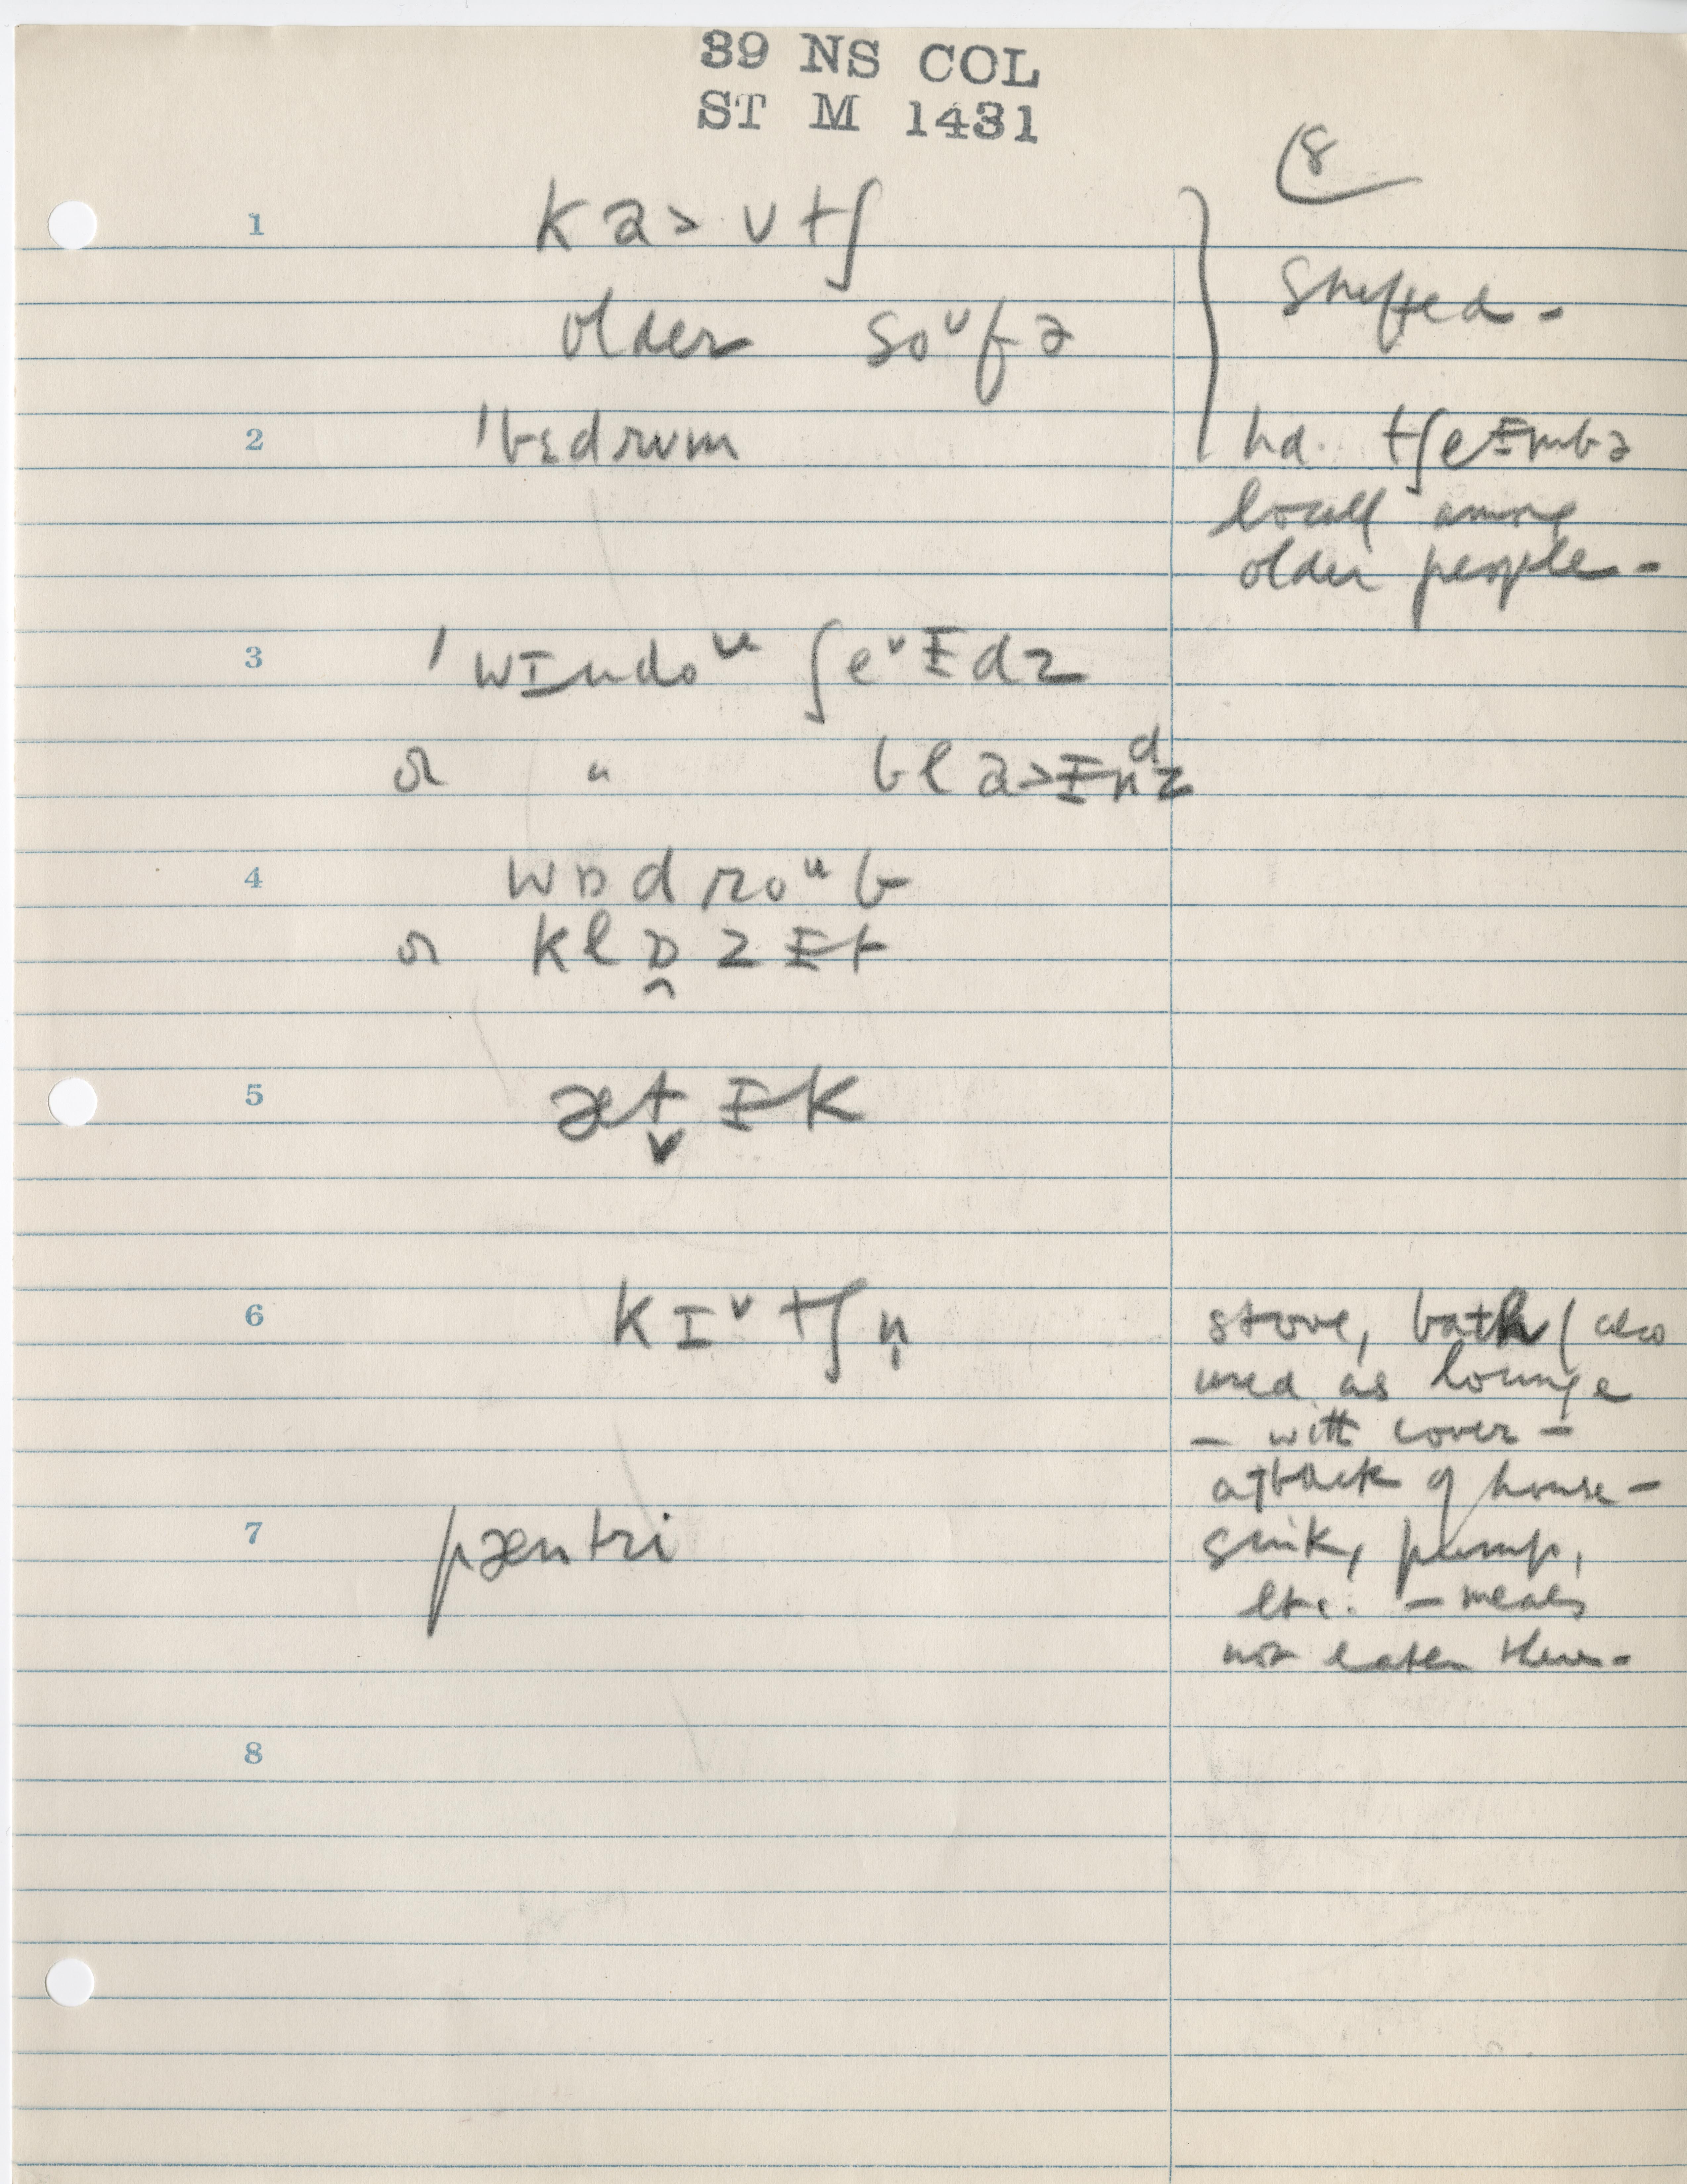 39 NS COL
ST M 1431
8
1 ka> ʊtʃ
Shifted -
older soᶷfə
2 ˈbɛdrʊm
hd. tʃeɪ̵mbə
locall among
older people -
3 ˈwɪndoᵘ ʃeᵛɪ̵dz
or " bla>ɪ̵nᵈz
4 wɒdroᵘb
or klɒ̭zɪ̵t
5 æt̬ɪ̵k
6 kɪᵛtʃn̩
stove, bath (also
used as lounge
- with cover -
at back of house -
7 pæntri
sink, pump,
etc. - meals
not eaten there -
8